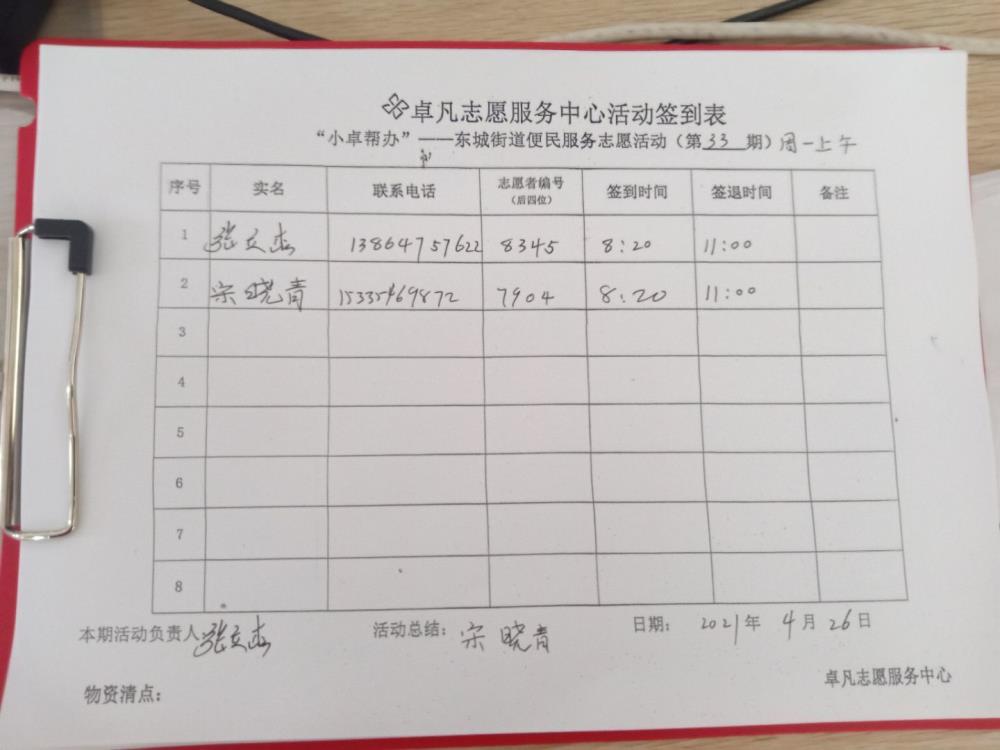 卓凡志愿服务中心活动签到表
“小卓帮办”——东城街道便民服务志愿活动（第33期）周一上午
序号 实名 联系电话 志愿者编号（后四位） 签到时间 签退时间 备注
1 张文杰 13864757622 8345 8:20 11:00
2 宋晓青 15335469872 7904 8:20 11:00
3
4
5
6
7
8
本期活动负责人 张文杰 活动总结： 宋晓青 日期： 2021年4月26日
物资清点： 卓凡志愿服务中心